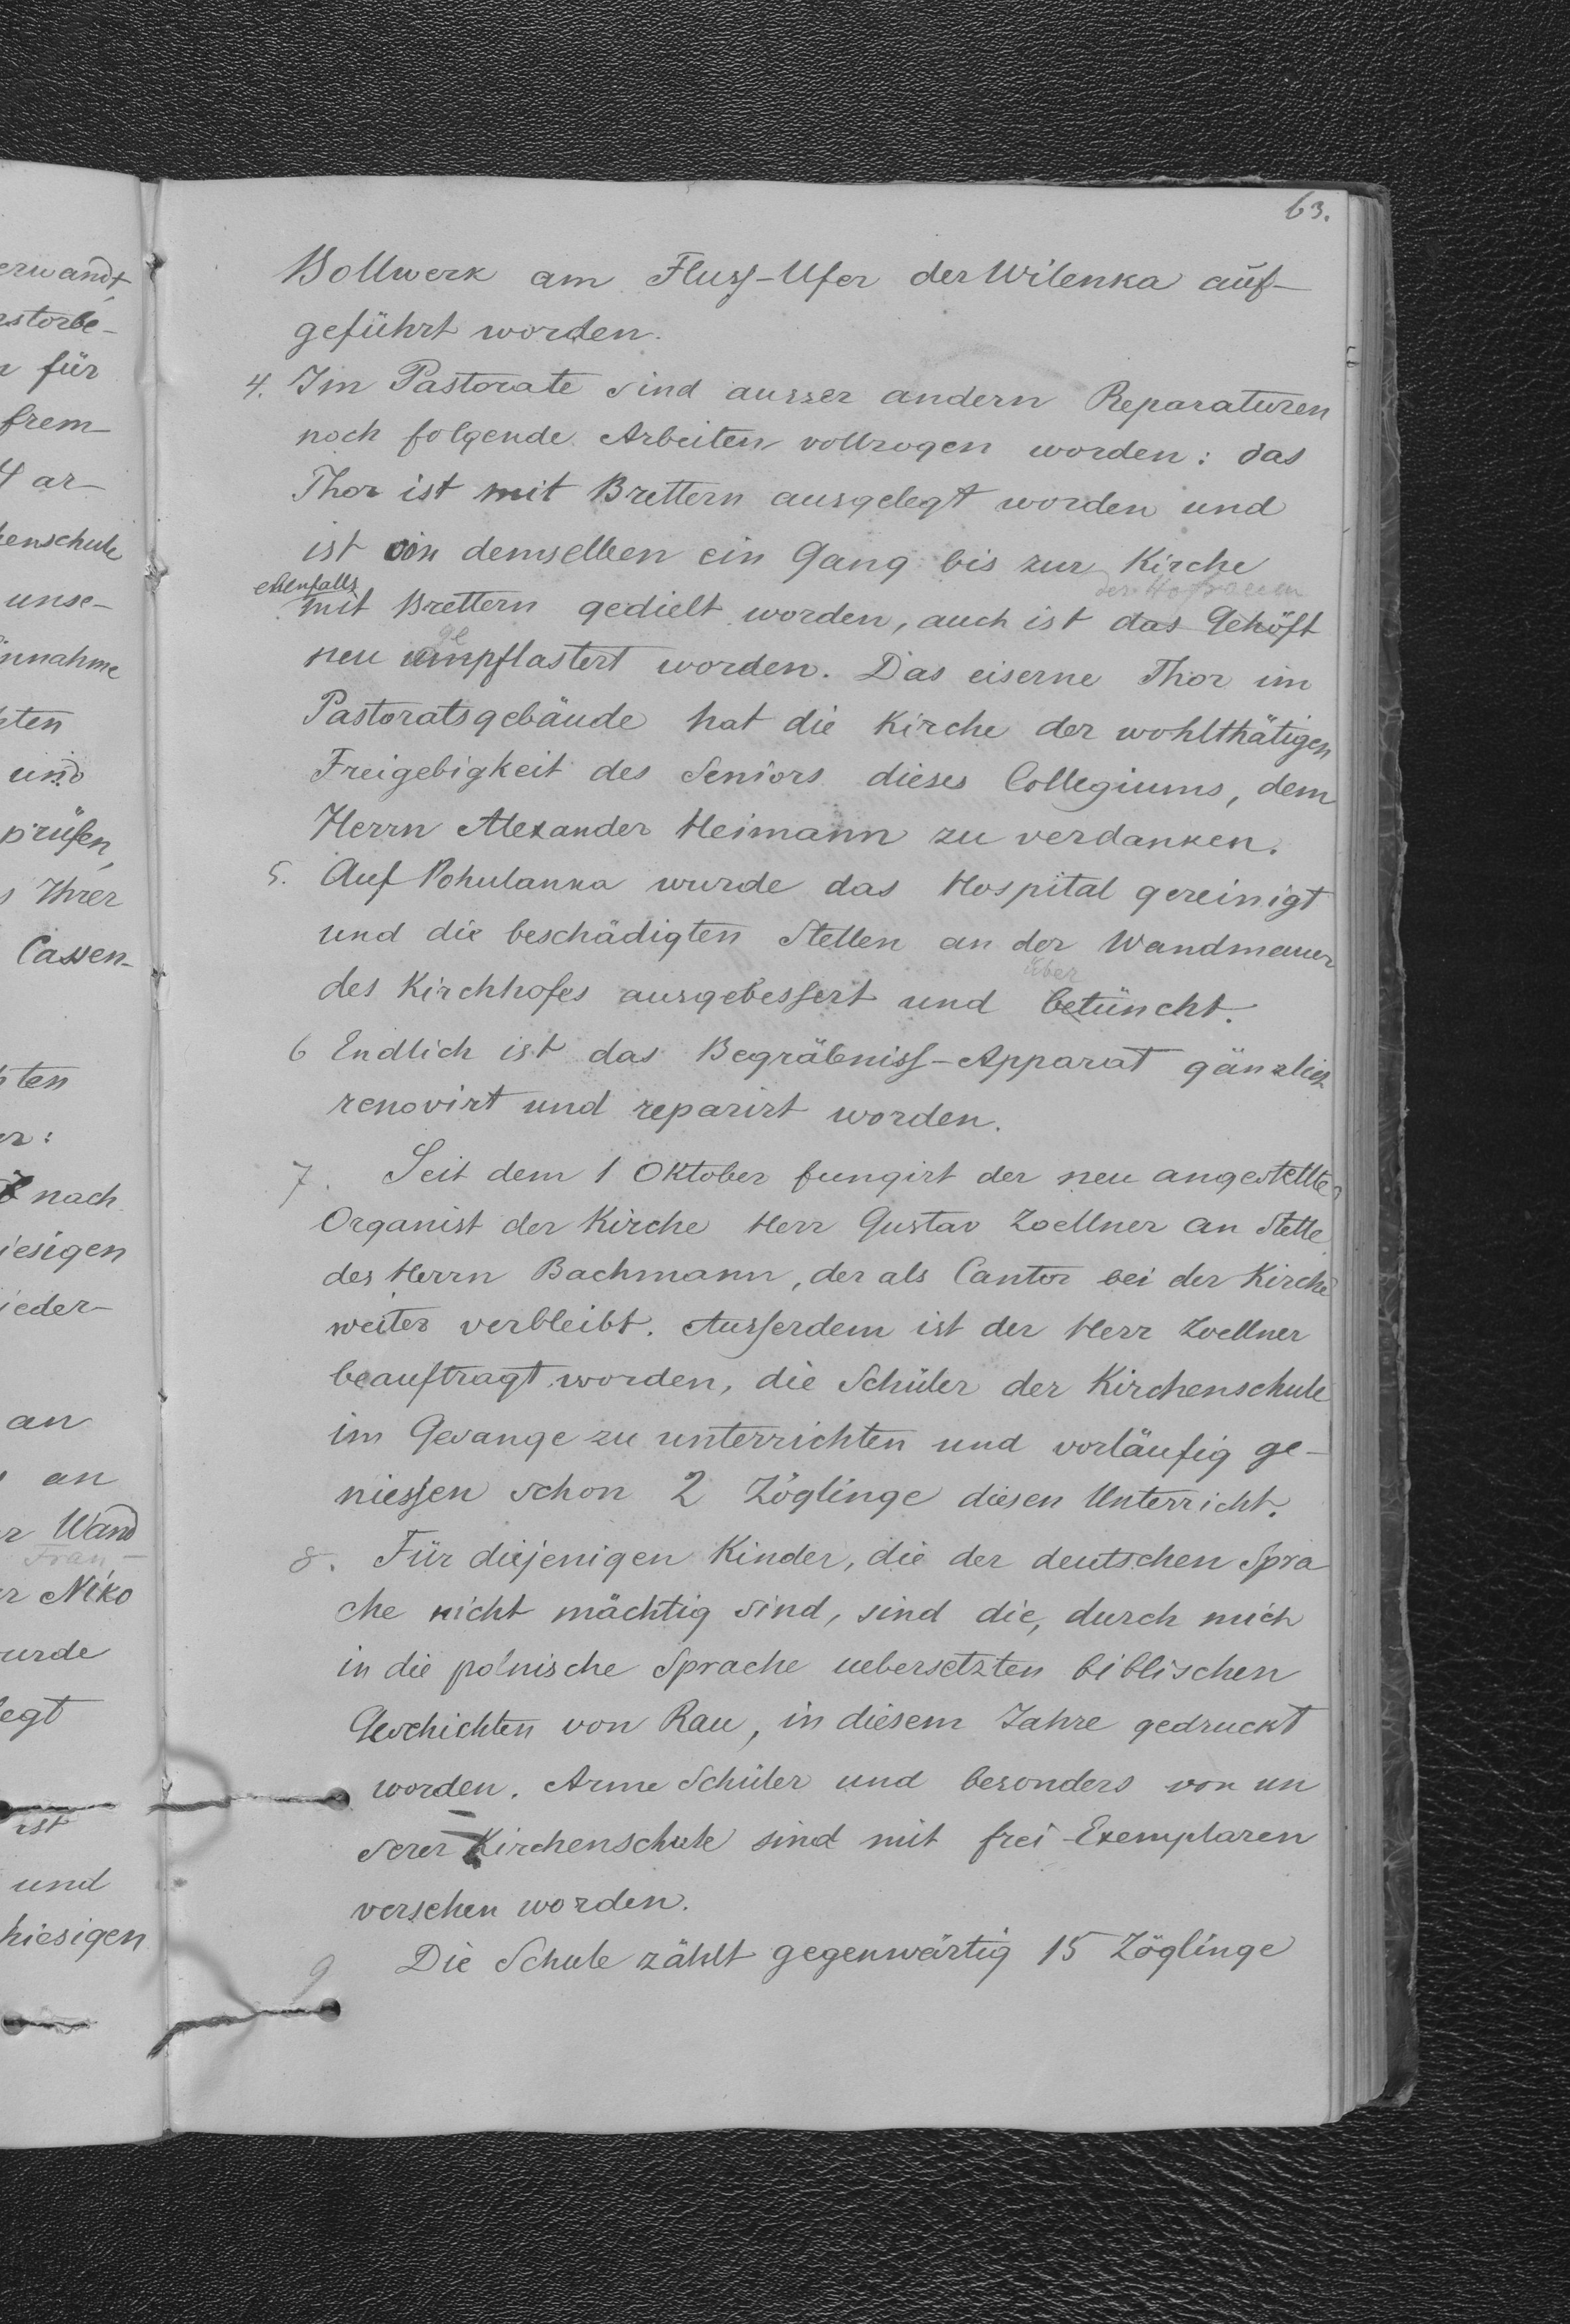 erwandt
rstorbe-
r für
frem-
4 ar-
henschule
unse-
innahme
hten
und
prüfen,
s Ihrer
Cassen-
hten
er:
nach
iesigen
ieder-
an
an
r Wand
Fran-
r Niko
urde
legt
ist
und
hiesigen
63.
Bollwerk am Fluss-Ufer der Wilenka auf-
geführt worden.
4. Im Pastorate sind ausser andern Reparaturen
noch folgende Arbeiten vollzogen worden: das
Thor ist mit Brettern ausgelegt worden und
ist in demselben ein Gang bis zur Kirche
ebenfalls der Hofraum
mit Brettern gedielt worden, auch ist das Gehöft
ge
neu umpflastert worden. Das eiserne Thor im
Pastoratsgebäude hat die Kirche der wohlthätigen
Freigebigkeit des Seniors dieses Collegiums, dem
Herrn Alexander Heimann zu verdanken.
5. Auf Pohulanka wurde das Hospital gereinigt
und die beschädigten Stellen an der Wandmauer
über
des Kirchhofes ausgebessert und betüncht.
6 Endlich ist das Begräbniss-Apparat gänzlich
renovirt und reparirt worden.
7. Seit dem 1 Oktober fungirt der neu angestellte
Organist der Kirche Herr Gustav Zoellner an Stelle
des Herrn Bachmann, der als Cantor bei der Kirche
weiter verbleibt. Ausserdem ist der Herr Zoellner
beauftragt worden, die Schüler der Kirchenschule
im Gesange zu unterrichten und vorläufig ge-
niessen schon 2 Zöglinge diesen Unterricht.
8. Für diejenigen Kinder, die der deutschen Spra
che nicht mächtig sind, sind die, durch mich
in die polnische Sprache uebersetzten biblischen
Geschichten von Rau, in diesem Jahre gedruckt
worden. Arme Schüler und besonders von un
serer Kirchenschule sind mit frei-Exemplaren
versehen worden.
9 Die Schule zählt gegenwärtig 15 Zöglinge